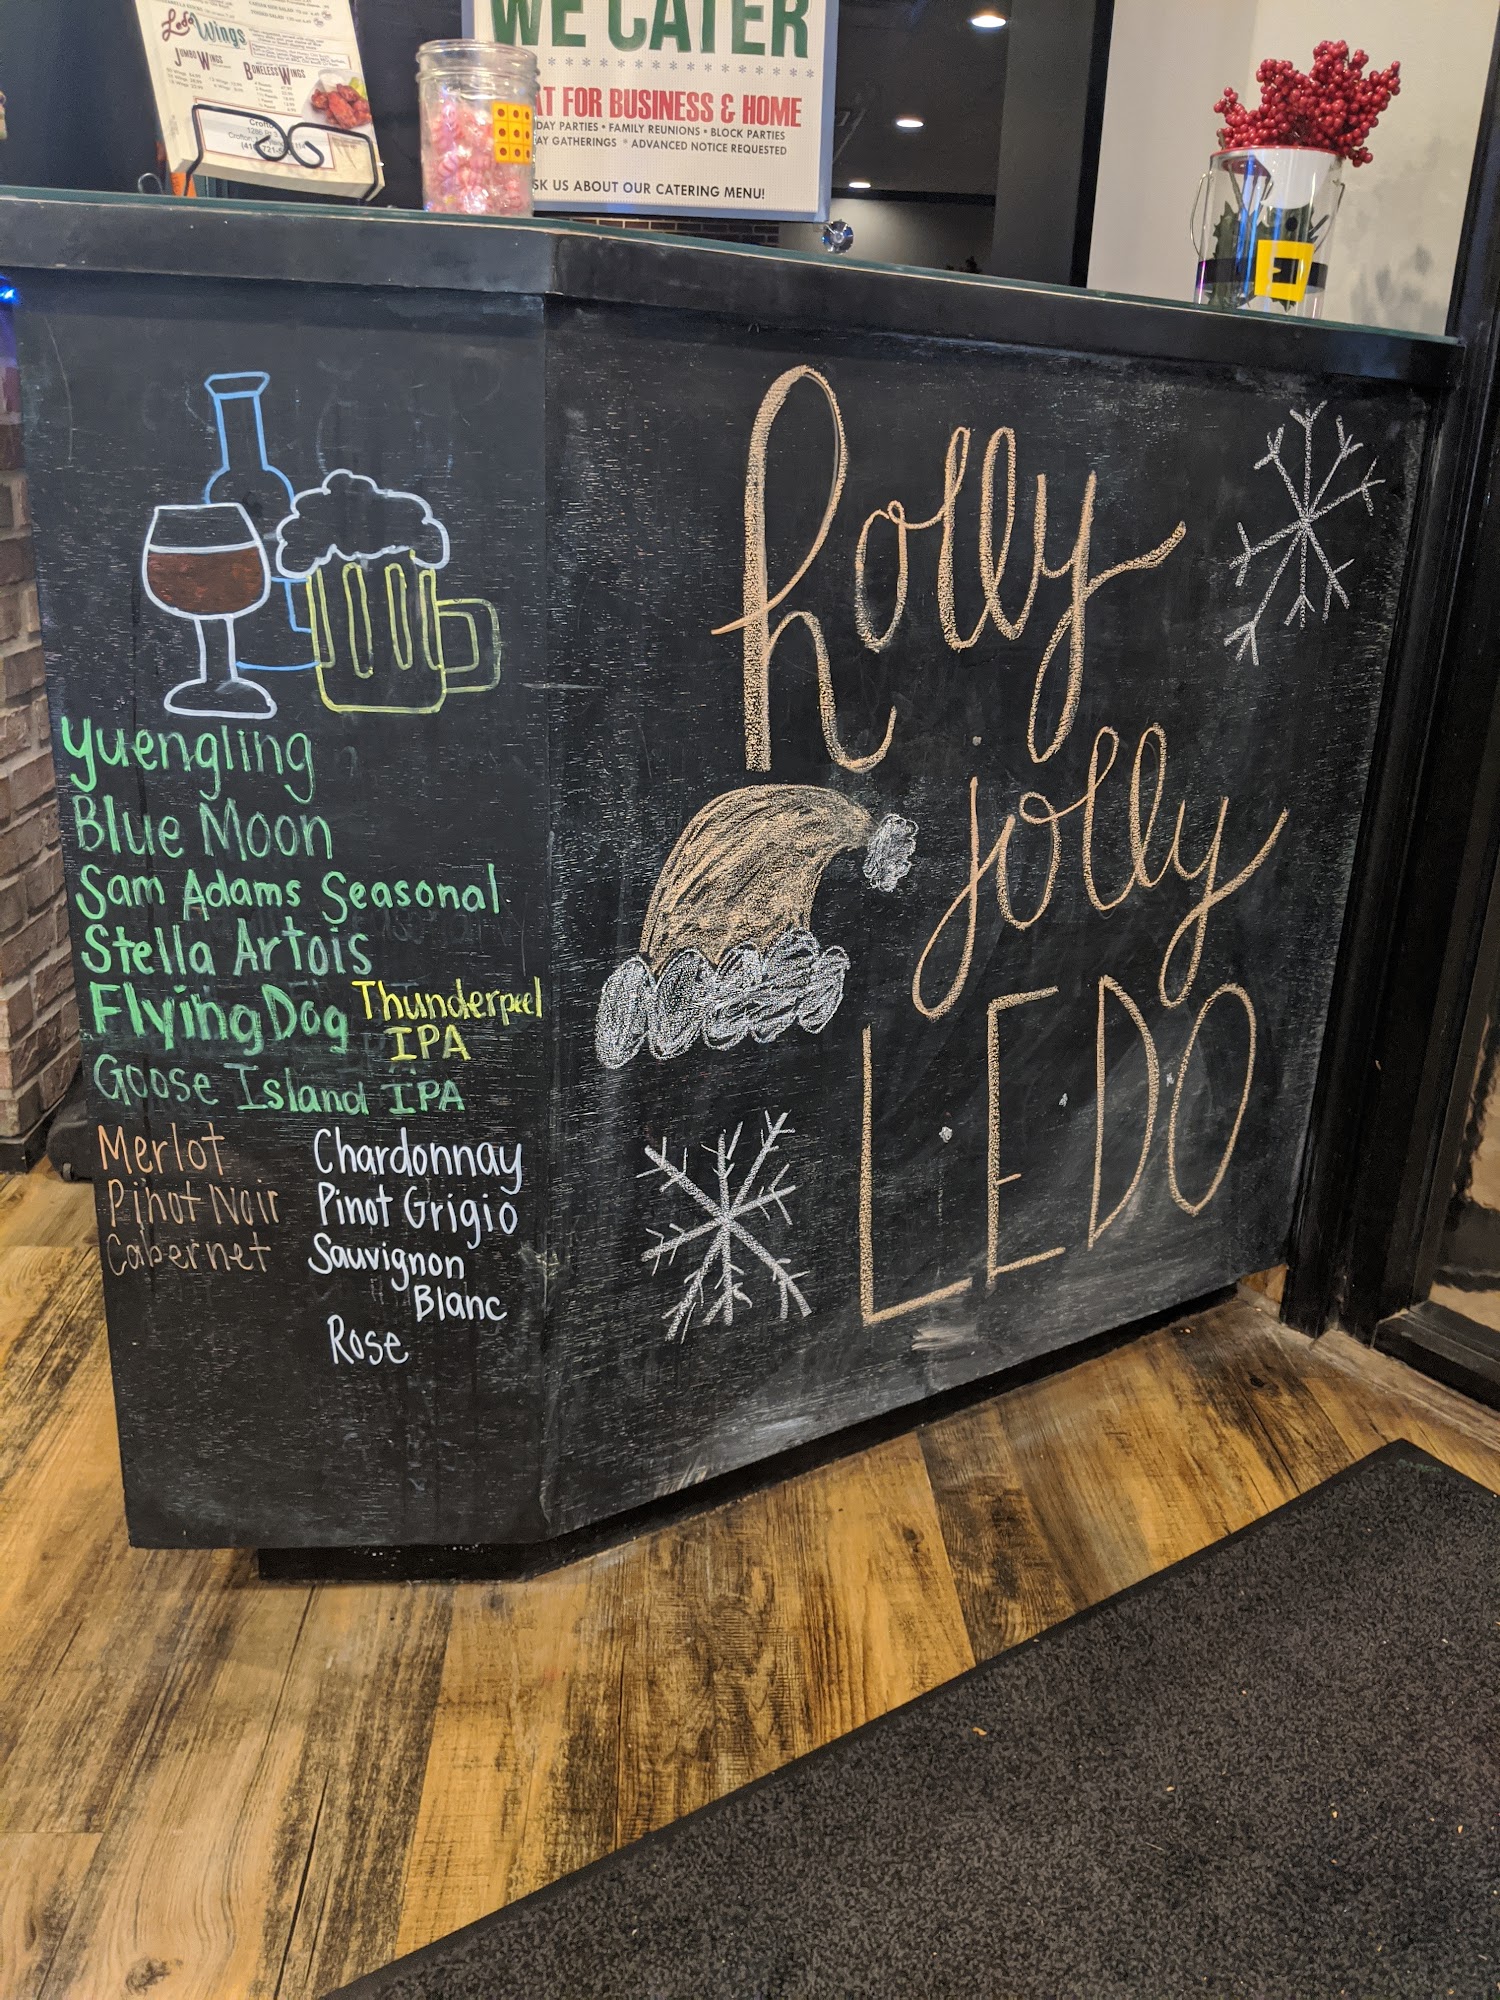 Ledo Wings
JUMBO WINGS
BONELESS WINGS
WE CATER
AT FOR BUSINESS & HOME
DAY PARTIES • FAMILY REUNIONS • BLOCK PARTIES
AY GATHERINGS * ADVANCED NOTICE REQUESTED
SK US ABOUT OUR CATERING MENU!
Yuengling
Blue Moon
Sam Adams Seasonal
Stella Artois
Flying Dog Thunderpeel
IPA
Goose Island IPA
Merlot
Pinot Noir
Cabernet
Chardonnay
Pinot Grigio
Sauvignon
Blanc
Rose
holly
jolly
LEDO